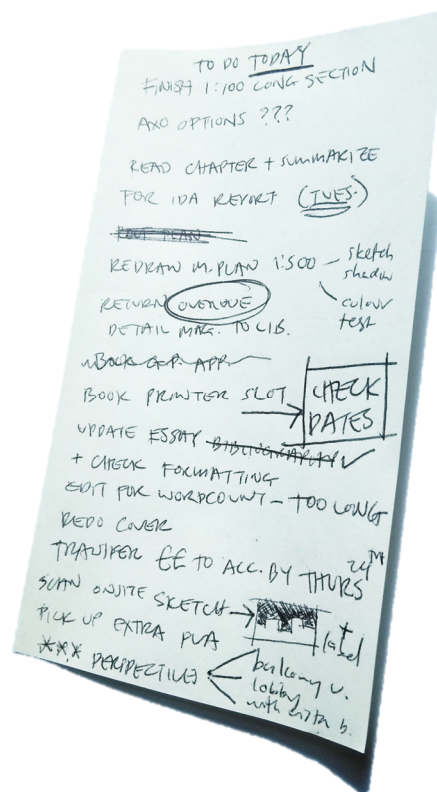 TO DO TODAY
FINISH 1:100 LONG SECTION
AXO OPTIONS ???
READ CHAPTER + SUMMARIZE
FOR IDA REPORT (TUES.)
REDRAW M.PLAN 1:500 — sketch shadow
colour test
RETURN OVERDUE
DETAIL MAG. TO LIB.
BOOK G.P. APP.
BOOK PRINTER SLOT → CHECK DATES
UPDATE ESSAY BIBLIOGRAPHY ✓
+ CHECK FORMATTING
EDIT FOR WORDCOUNT — TOO LONG
REDO COVER
TRANSFER ££ TO ACC. BY THURS 24TH
SCAN ONSITE SKETCH → + label
PICK UP EXTRA PLA
*** PERSPECTIVES
balcony v.
lobby
with b.